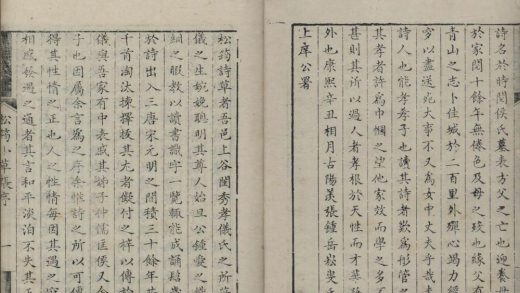 詩名於時聞侯氏墓表方父之亡也迎養母
於家閱十餘年無倦色及母之歿也緣父有
青山之志卜佳城於二百里外殫心竭力經
穸以盡送死大事不又為女中丈夫乎哉
詩人也能孝孝子也讀其詩者歎為彤管
其孝者許為巾幗之望他家效而學之多
甚則其所以過人者孝根於天性而才華
外也康熙辛丑相月古陽羨張鍾岳叟氏
上庠公署
松筠詩草者吾邑上谷閨秀孝儀氏之所
儀之生婉娩聰明其尊人始旦公鍾愛之
繡之暇教以讀書識字一覽輒能成誦
於詩出入三唐宋元明之間積三十餘年
千首淘汰揀擇拔其尤者儗付之梓以傳
儀與吾家有中表戚其姊子仲儒匡侯又
子也因屬余言為之序余惟詩之所以可
得其性情之正也人之性情每因其遇之
相感故遇之通者其言和平淡泊不失其正
松筠小草張序 一